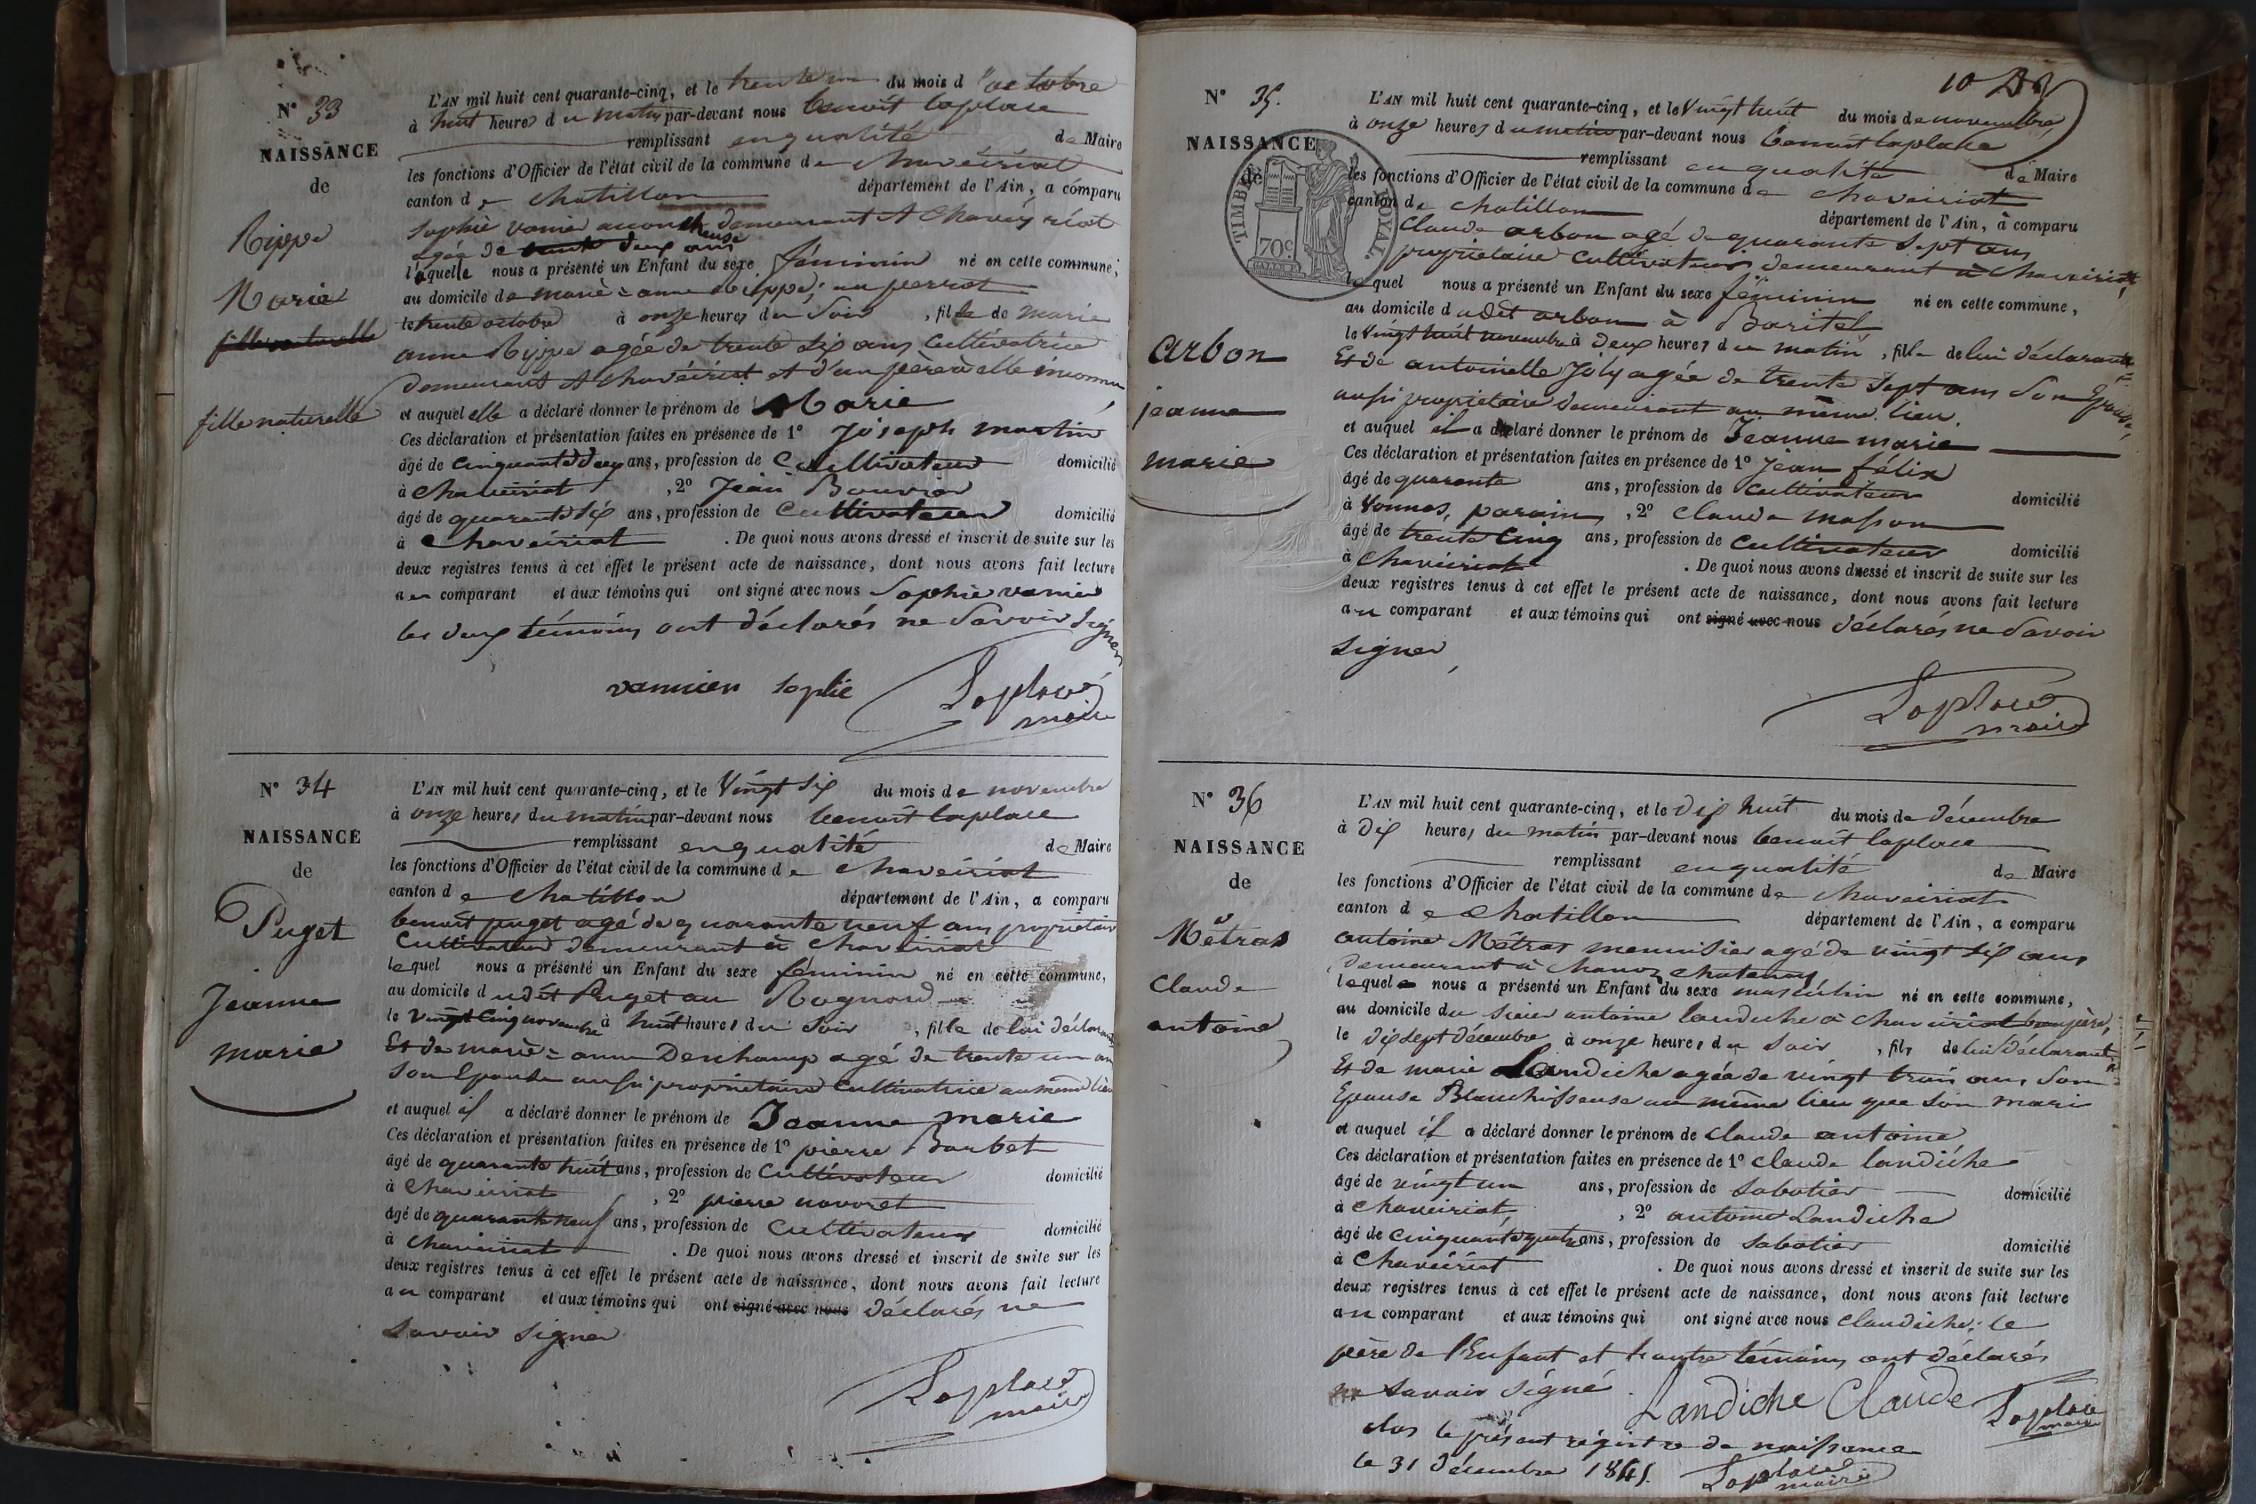 N° 33
NAISSANCE
de
Rippe
Marie
fille naturelle
fille naturelle
L'AN mil huit cent quarante-cinq, et le trente un du mois d'octobre
à huit heures du matin par-devant nous benoit laplace
remplissant en qualité de Maire
les fonctions d'Officier de l'état civil de la commune de chaveiriat
canton de chatillon département de l'Ain, a comparu
Sophie vanier accoucheuse demeurant A Chaveyriat
agée de trente deux ans
laquelle nous a présenté un Enfant du sexe féminin né en cette commune,
au domicile de marie = anne Rippe, au perrot
le trente octobre à onze heures du Soir, fille de marie
anne Rippe agée de trente Six ans Cultivatrice
demeurant A chavéiriat et d'un père à elle inconnu
et auquel elle a déclaré donner le prénom de Marie
Ces déclaration et présentation faites en présence de 1° Joseph martin
âgé de cinquante deux ans, profession de Cultivateur domicilié
à chaveiriat, 2° Jean Bouvier
âgé de quarante Six ans, profession de Cultivateur domicilié
à Chaveiriat. De quoi nous avons dressé et inscrit de suite sur les
deux registres tenus à cet effet le présent acte de naissance, dont nous avons fait lecture
au comparant et aux témoins qui ont signé avec nous Sophie vanier
les deux témoins ont déclarés ne Savoir Signer
vannier Sophie Laplace
maire
N° 34
NAISSANCE
de
Puget
Jeanne
marie
L'AN mil huit cent quarante-cinq, et le Vingt Six du mois de novembre
à onze heures du matin par-devant nous benoit laplace
remplissant en qualité de Maire
les fonctions d'Officier de l'état civil de la commune de chaveiriat
canton de chatillon département de l'Ain, a comparu
benoit puget agé de quarante neuf ans propriétaire
Cultivateur demeurant à chaveiriat
lequel nous a présenté un Enfant du sexe féminin né en cette commune,
au domicile dudit Puget au Rognard
le vingt Cinq novembre à huit heures du Soir, fille de lui déclarant
Et de marie = anne Deschamp agé de trente un an
Son Epouse aussi propriétaire Cultivatrice au même lieu
et auquel il a déclaré donner le prénom de Jeanne marie
Ces déclaration et présentation faites en présence de 1° pierre Barbet
âgé de quarante huit ans, profession de Cultivateur domicilié
à Chaveiriat, 2° pierre navoret
âgé de quarante neuf ans, profession de Cultivateur domicilié
à Chaveiriat. De quoi nous avons dressé et inscrit de suite sur les
deux registres tenus à cet effet le présent acte de naissance, dont nous avons fait lecture
au comparant et aux témoins qui ont signé avec nous déclarés ne
Savoir Signer
Laplace
maire
N° 35.
NAISSANCE
de
TIMBRE ROYAL
70 c.
Arbon
jeanne
marie
L'AN mil huit cent quarante-cinq, et le Vingt huit du mois de novembre
à onze heures du matin par-devant nous benoit laplace
remplissant en qualité de Maire
les fonctions d'Officier de l'état civil de la commune de chaveiriat
canton de chatillon département de l'Ain, à comparu
Claude arbon agé de quarante Sept ans
propriétaire Cultivateur demeurant à chaveiriat
lequel nous a présenté un Enfant du sexe féminin né en cette commune,
au domicile dudit arbon à Baritel
le Vingt huit novembre à deux heures du matin, fille de lui déclarant
Et de antoinette Joly agée de trente Sept ans Son Epouse
aussi propriétaire demeurant au même lieu.
et auquel il a déclaré donner le prénom de Jeanne marie
Ces déclaration et présentation faites en présence de 1° Jean félix
âgé de quarante ans, profession de Cultivateur domicilié
à Vonnas, parain, 2° Claude masson
âgé de trente Cinq ans, profession de Cultivateur domicilié
à Chaveiriat. De quoi nous avons dressé et inscrit de suite sur les
deux registres tenus à cet effet le présent acte de naissance, dont nous avons fait lecture
au comparant et aux témoins qui ont signé avec nous déclarés ne Savoir
Signer
Laplace
maire
N° 36
NAISSANCE
de
Métras
Claude
antoine
L'AN mil huit cent quarante-cinq, et le Dix huit du mois de Décembre
à Dix heures du matin par-devant nous benoit laplace
remplissant en qualité de Maire
les fonctions d'Officier de l'état civil de la commune de chaveiriat
canton de Chatillon département de l'Ain, a comparu
antoine Métras menuisier agé de vingt Six ans
Demeurant à chanoz chatenay
lequel nous a présenté un Enfant du sexe masculin né en cette commune,
au domicile du Sieur antoine landiche à chaveiriat beaupère,
le dix Sept décembre à onze heures du Soir, fils de lui déclarant
Et de marie Landiche agée de vingt trois ans Son
Epouse Blanchisseuse au même lieu que Son mari
et auquel il a déclaré donner le prénom de Claude antoine
Ces déclaration et présentation faites en présence de 1° Claude landiche
âgé de vingt un ans, profession de Sabotier domicilié
à Chaveiriat, 2° antoine Landiche
âgé de Cinquante quatre ans, profession de Sabotier domicilié
à Chavéiriat. De quoi nous avons dressé et inscrit de suite sur les
deux registres tenus à cet effet le présent acte de naissance, dont nous avons fait lecture
au comparant et aux témoins qui ont signé avec nous Claudiche; le
père de l'Enfant et l'autre témoin ont déclarés
ne Savoir Signé.
Landiche Claude Laplace
maire
clos le présent régistre de naissance
le 31 Décembre 1845. Laplace
maire